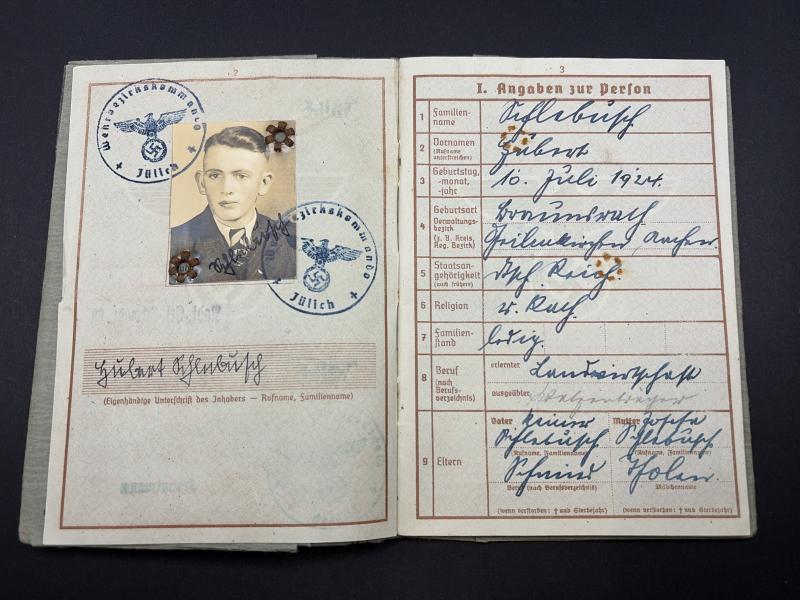 2
Wehrbezirkskommando
Jülich
Schlebusch
Wehrbezirkskommando
Jülich
Hubert Schlebusch
(Eigenhändige Unterschrift des Inhabers — Rufname, Familienname)
3
I. Angaben zur Person
1 Familien-
name
Schlebusch
2 Vornamen
(Rufname
unterstreichen)
Hubert
3 Geburtstag,
-monat,
-jahr
10. Juli 1924.
4 Geburtsort
Verwaltungs-
bezirk
(z. B. Kreis,
Reg. Bezirk)
Braunsrath
Geilenkirchen Aachen.
5 Staatsan-
gehörigkeit
(auch frühere)
dtsch. Reich.
6 Religion
r. Kath.
7 Familien-
stand
ledig.
8 Beruf
(nach
Berufs-
verzeichnis)
erlernter
Landwirtschaft
ausgeübter
9 Eltern
Vater
Schlebusch
(Rufname, Familienname)
Schmied
Beruf (nach Berufsverzeichnis)
(wenn verstorben: † und Sterbejahr)
Mutter
Schlebusch
(Rufname, Familienname)
Mädchenname
(wenn verstorben: † und Sterbejahr)